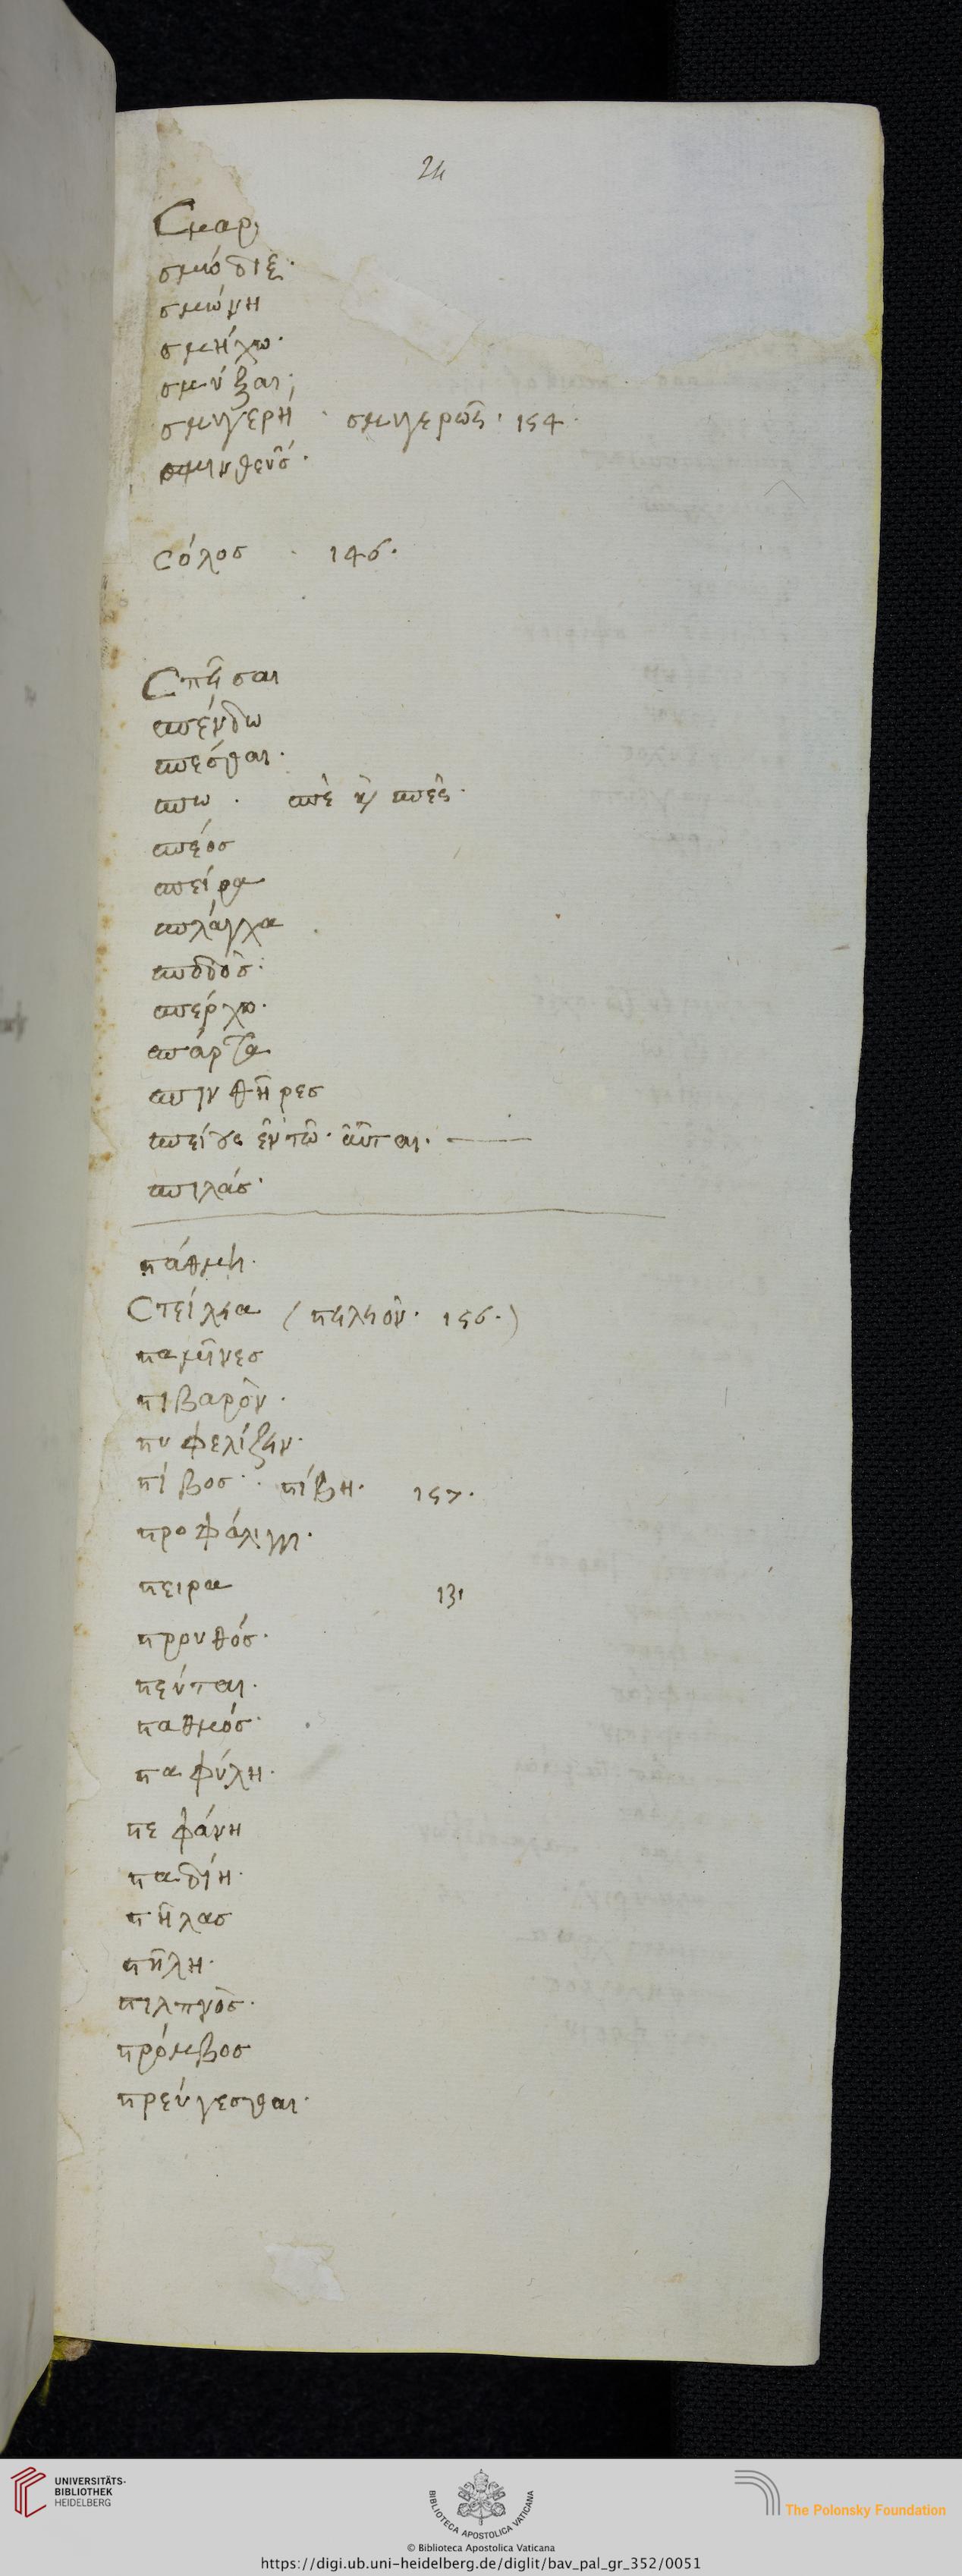 24
Σμαρ)
σμώδιξ·
σμώνη
σμήχω·
σμύξαι;
σμυγερή · σμυγερῶς· 154·
σμινθεύς·
σόλος · 146·
Σπῆσαι
σπένδω
σπέσθαι·
σπω · σπὲ ἢ σπές·
σπέος
σπείρα
σπλάγχα
σποδὸς·
σπέρχω·
σπάρτα
σπινθῆρες
σπιλάς·
στάθμη·
Στεῖλεα (στειλεὸν· 156·)
σταμῖνες
στιβαρὸν·
στυφελίξειν·
στίβος· · στίβη· 157·
στροφάλιγγι·
στειρα 131
στρουθός·
στεύται·
σταθμός·
σταφύλη·
στεφάνη
σταδίη·
στήλας
στήλη·
στιλπνὸς·
στρόμβος
στρεύγεσθαι·
UNIVERSITÄTS-
BIBLIOTHEK
HEIDELBERG
BIBLIOTECA APOSTOLICA VATICANA
The Polonsky Foundation
© Biblioteca Apostolica Vaticana
https://digi.ub.uni-heidelberg.de/diglit/bav_pal_gr_352/0051